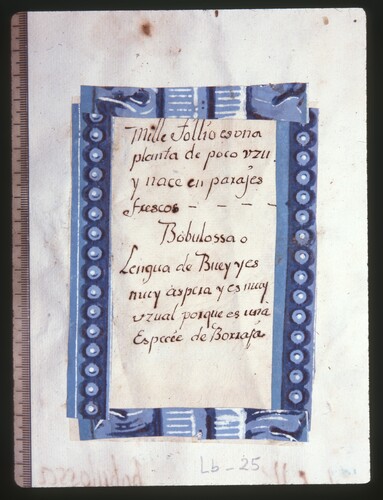 Mille follio es vna
planta de poco vzu
y nace en parajes
frescos - - - -
Bobulossa o
Lengua de Buey y es
muy aspera y es muy
vzual porque es una
Especie de Borraja
Lb-25